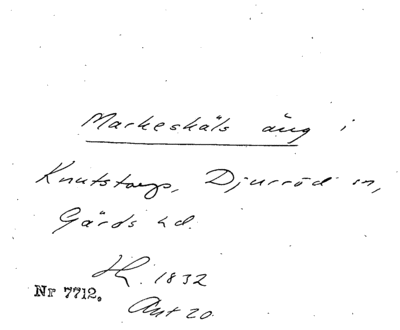 Markeskäls äng i
Knutstorp, Djurröd sn,
Gärds hd.
1832
Nr 7712.
Ant 20